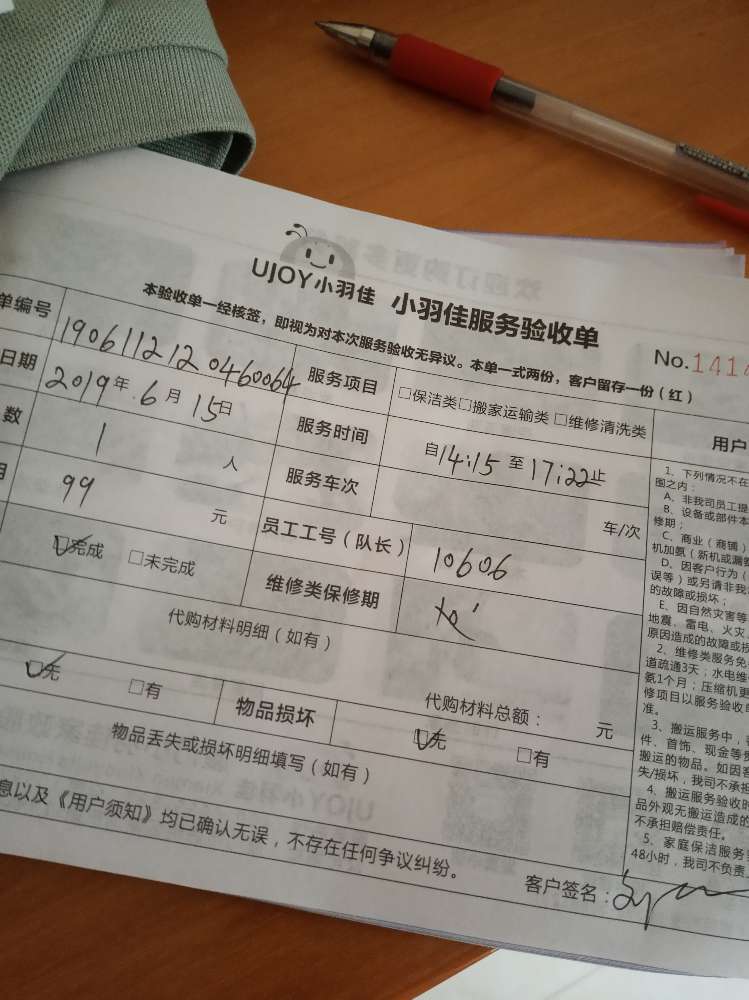 UJOY小羽佳 小羽佳服务验收单
本验收单一经核签，即视为对本次服务验收无异议。本单一式两份，客户留存一份（红）
No.1414
单编号 190611212046006
服务项目 □保洁类□搬家运输类 □维修清洗类
日期 2019年 6月 15日
服务时间 自14:15 至17:22止
数 1 人
服务车次 车/次
99 元
员工工号（队长） 10606
完成 □未完成
维修类保修期
代购材料明细（如有）
代购材料总额： 元
无 □有
物品损坏 无 □有
物品丢失或损坏明细填写（如有）
息以及《用户须知》均已确认无误，不存在任何争议纠纷。
客户签名：
用户
1、下列情况不在
围之内：
A、非我司员工提
B、设备或部件本
修期；
C、商业（商铺）
机加氨（新机或漏氨
D、因客户行为（
误等）或另请非我
的故障或损坏；
E、因自然灾害等
地震、雷电、火灾
原因造成的故障或损
2、维修类服务免
道疏通3天；水电维
氨1个月；压缩机更
修项目以服务验收单
准。
3、搬运服务中，
件、首饰、现金等贵
搬运的物品。如因客
失/损坏，我司不承担
4、搬运服务验收时
品外观无搬运造成的
不承担赔偿责任。
5、家庭保洁服务
48小时，我司不负责